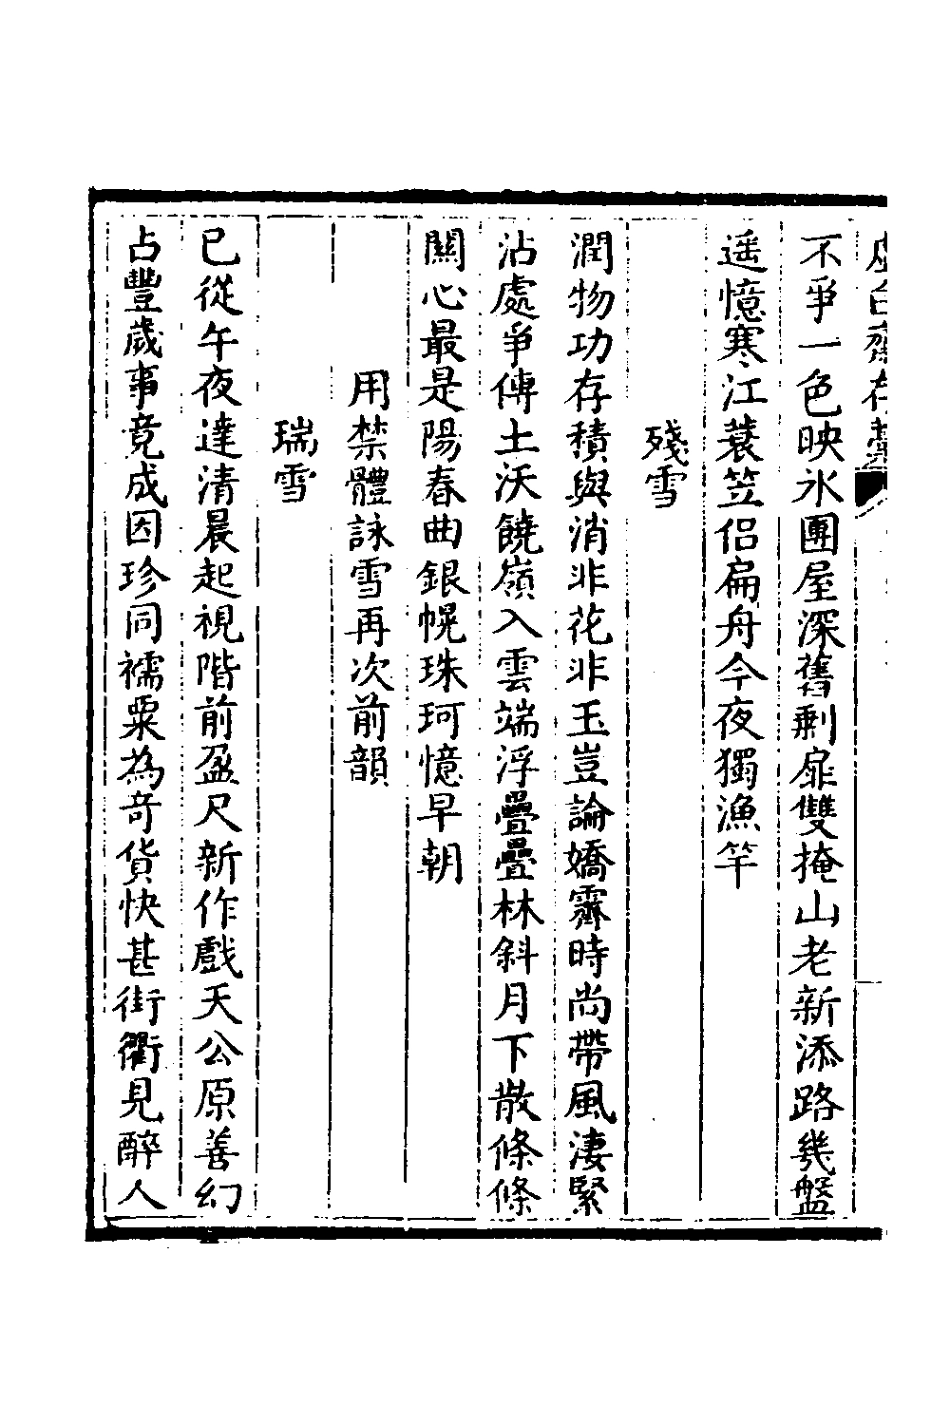 虛白齋存藁
不爭一色映氷團屋深舊剩扉雙掩山老新添路幾盤
遥憶寒江蓑笠侣扁舟今夜獨漁竿
殘雪
潤物功存積與消非花非玉豈論嬌霽時尚帶風淒緊
沾處爭傳土沃饒嶺入雲端浮疊疊林斜月下散條條
關心最是陽春曲銀幌珠珂憶早朝
用禁體詠雪再次前韻
瑞雪
已從午夜達清晨起視階前盈尺新作戲天公原善幻
占豐歲事竟成因珍同襦粟為奇貨快甚街衢見醉人